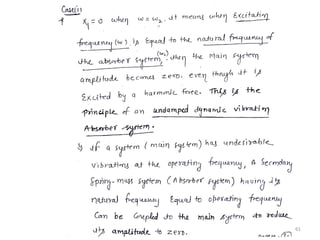 Case(ii)
* X₁ = 0 when ω = ω₂. It means when Excitation
frequency (ω) is Equal to the natural frequency of
the absorber system, (ω₂) then the Main system
amplitude becomes zero. even though it is
Excited by a harmonic force. This is the
principle of an undamped dynamic vibration
Absorber system.
If a system (main system) has undesirable
vibrations at the operating frequency, a Secondary
Spring-mass system (Absorber system) having its
natural frequency Equal to operating frequency
Can be Coupled to the main system to reduce
its amplitude to zero.